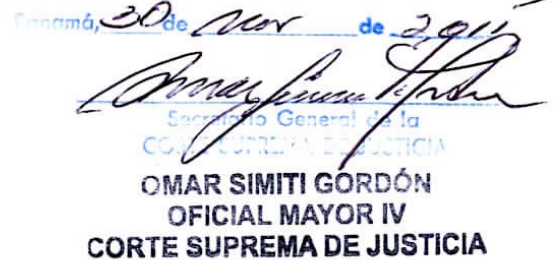 Panamá, 30 de Nov de 2015
Secretario General de la
CORTE SUPREMA DE JUSTICIA
OMAR SIMITI GORDÓN
OFICIAL MAYOR IV
CORTE SUPREMA DE JUSTICIA